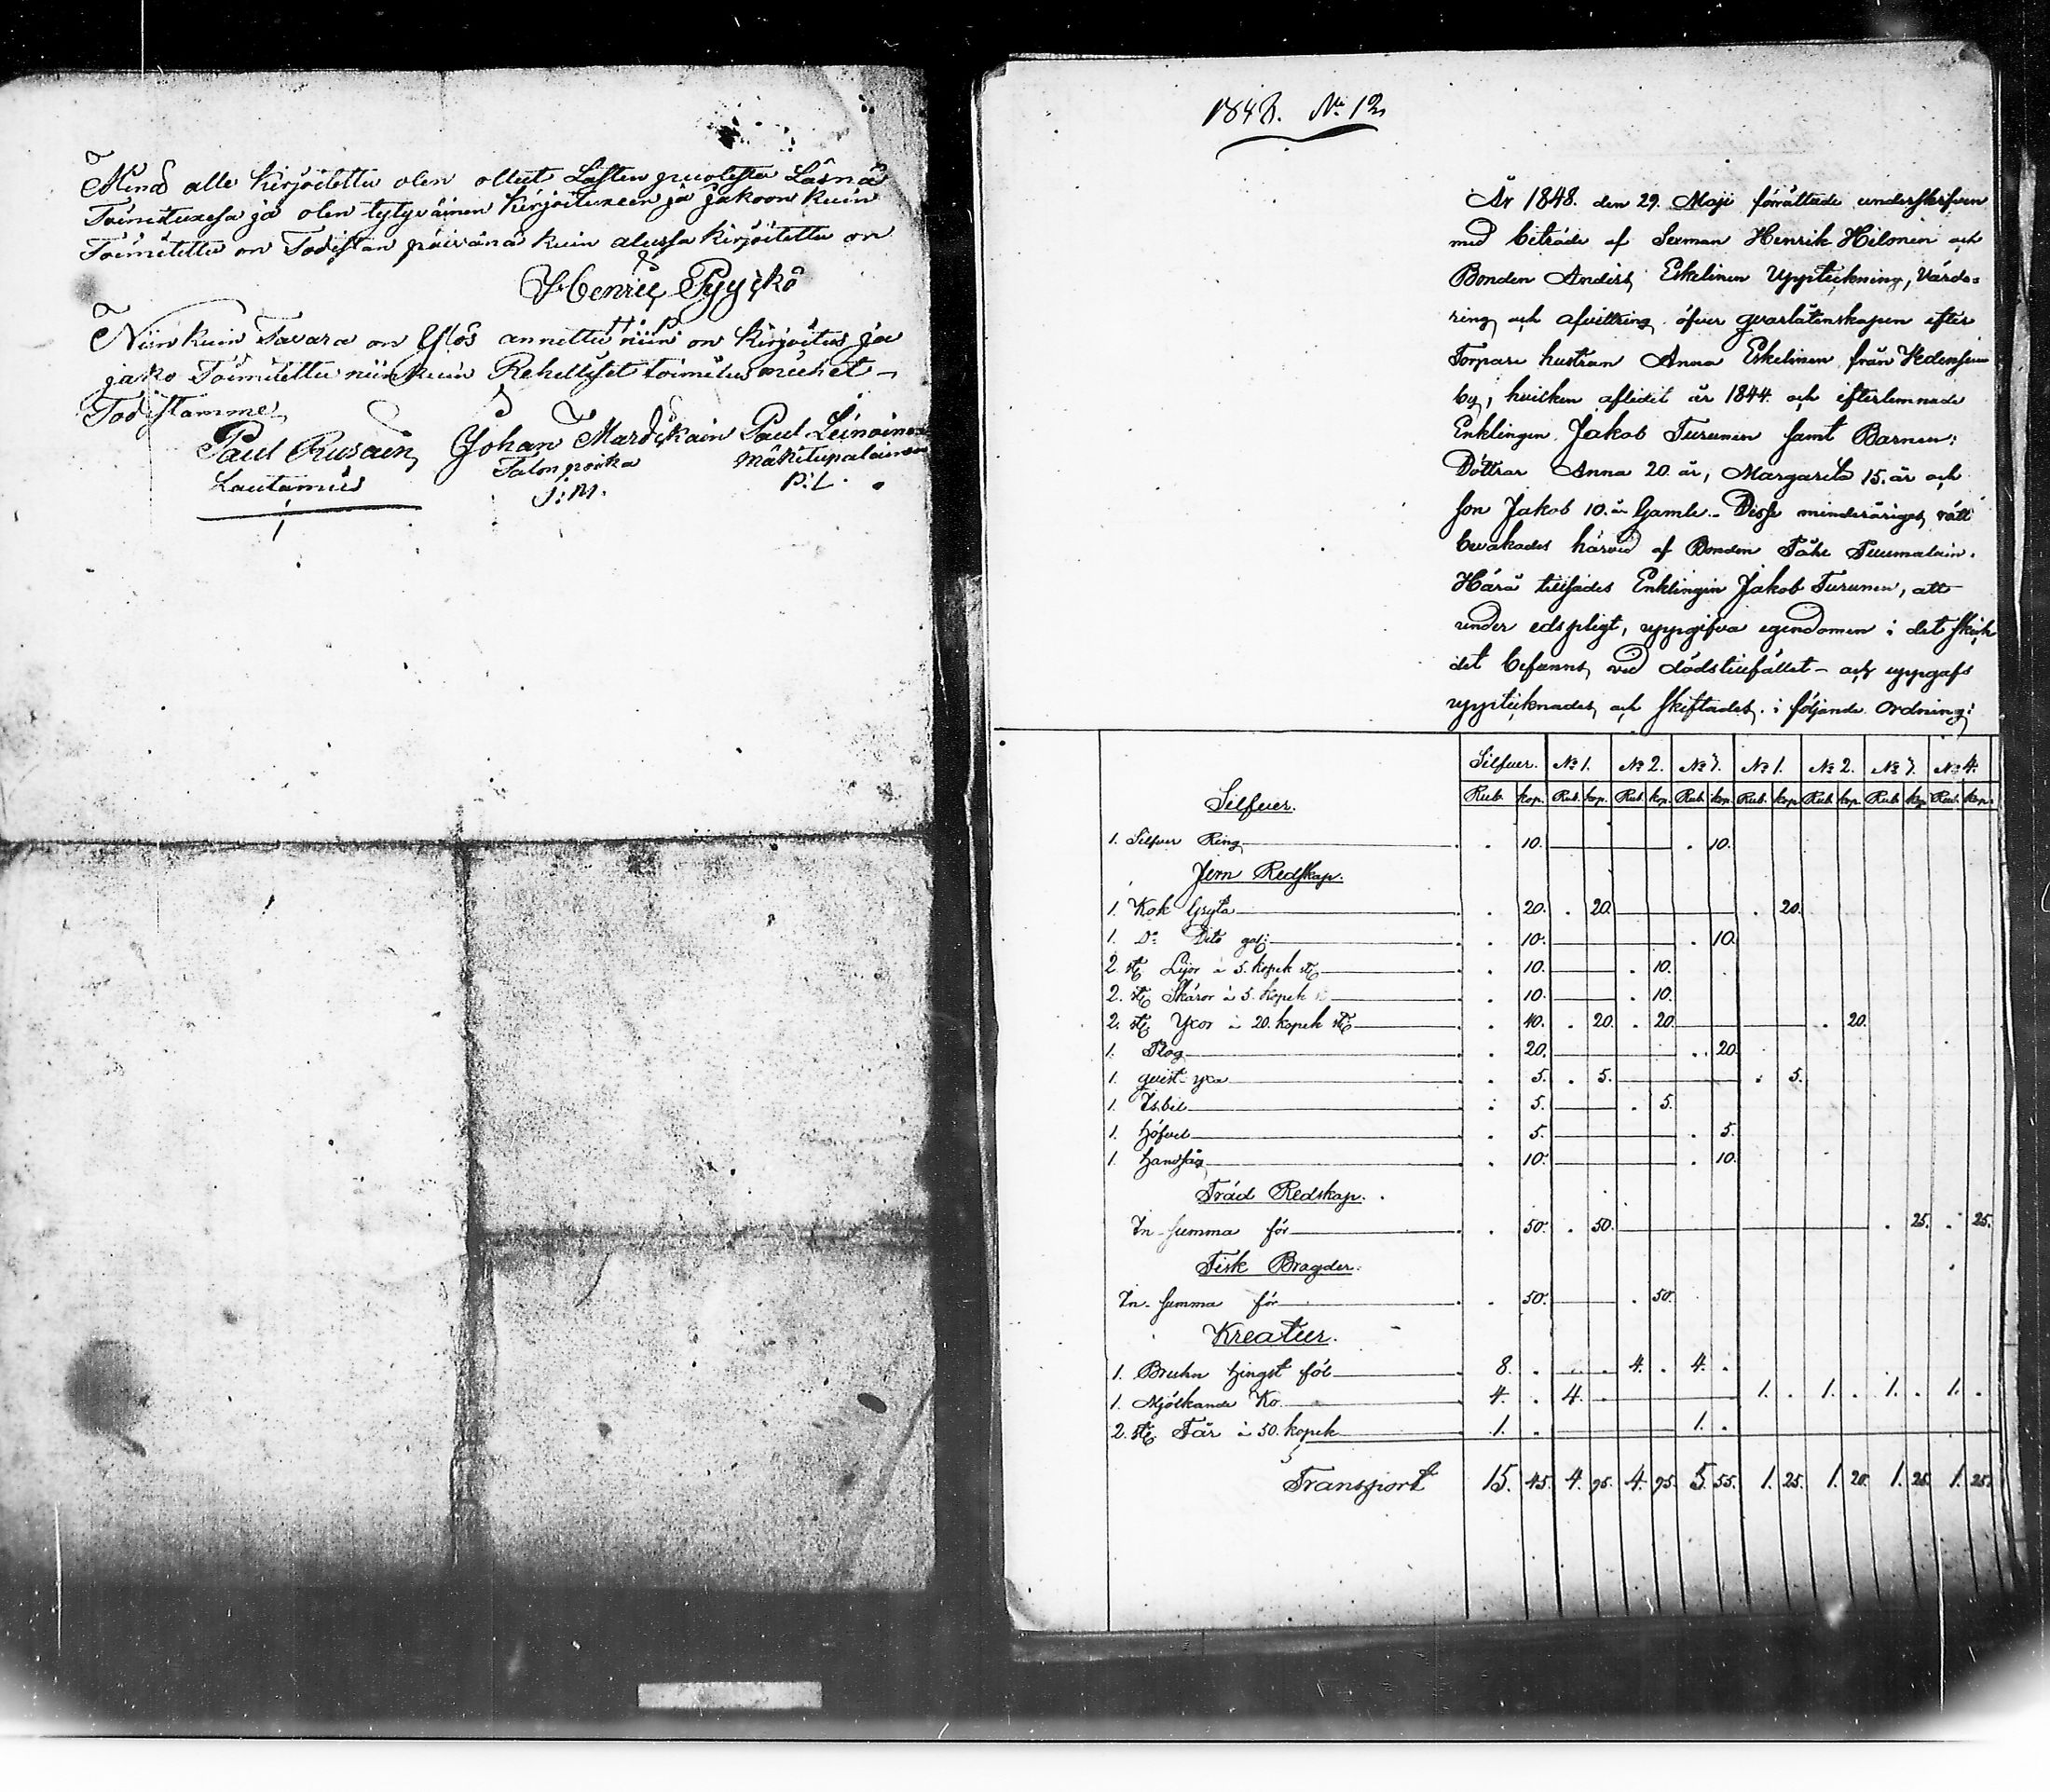 Minä alle kirjoitettu olen ollut Lasten puolesta Läsnä
Toimituxesa ja olen tytyväinen kirjoituxeen ja jakoon kuin
Toimitettu on Todistan päivänä kuin alussa kirjoitettu on
Henric Pyyckö
H. P.
Niin kuin Tavara on Ylös annettu niin on kirjoitus ja
jako Toimitettu niin kuin Rehelliset toimitus miehet
Todistamme
Paul Rusain Johan Mardikain Paul Leinoinen
Lautamies Talon poika Mäkitupalainen
J. M. P. L.
1848. No 12
År 1848. den 29. Maji förrättade underskrifven
med biträde af Sexman Henrik Hilonin och
Bonden Anders Eskelinen Uppteckning, Värde=
ring och afvittring öfver qvarlåtenskapen efter
Torpare hustrun Anna Eskelinen från
by, hvilken aflidit år 1844. och efterlemnade
Enklingen Jakob Turunen samt Barnen:
Döttrar Anna 20. år, Margareta 15. år och
son Jakob 10. år Gamle. Desse minderåriges rätt
bevakades härvid af Bonden
Härå tillsades Enklingin Jakob Turunen, att
under edsplegt, uppgifva egendomen i det skick
det befanns vid dödstillfället – och uppgafs
upptecknades och skiftades i följande Ordning:
Silfver. No 1. No 2. No 3. No 1. No 2. No 3. No 4.
Rub. kop. Rub. kop. Rub. kop. Rub. kop. Rub. kop. Rub. kop. Rub. kop. Rub. kop.
Silfver.
1. Silfver Ring . 10. . 10.
Jern Redskap.
1. Kok Gryta . 20. . 20. . 20.
1. Do Dito . 10. . 10.
2. st. Lijor à 5. kopek st. . 10. . 10.
2. st. Skäror à 5. kopek . 10. . 10.
2. st. Yxor à 20. kopek st. . 40. . 20. . 20. . 20.
1. Plog . 20. . 20.
1. qvist yxa . 5. . 5. . 5.
1. Isbil . 5. . 5.
1. Höfvel . 5. . 5.
1. Handsåg . 10. . 10.
Träd Redskap.
In summa för . 50. . 50. . 25. . 25.
Fisk Bragder.
In summa för . 50. . 50.
Kreatur.
1. Bruhn Hingst föl 8. . 4. . 4. .
1. Mjölkande Ko 4. . 4. . 1. . 1. . 1. . 1. .
2. st. Får à 50. kopek 1. . 1. .
Transport 15. 45. 4. 95. 4. 95. 5. 55. 1. 25. 1. 20. 1. 25. 1. 25.